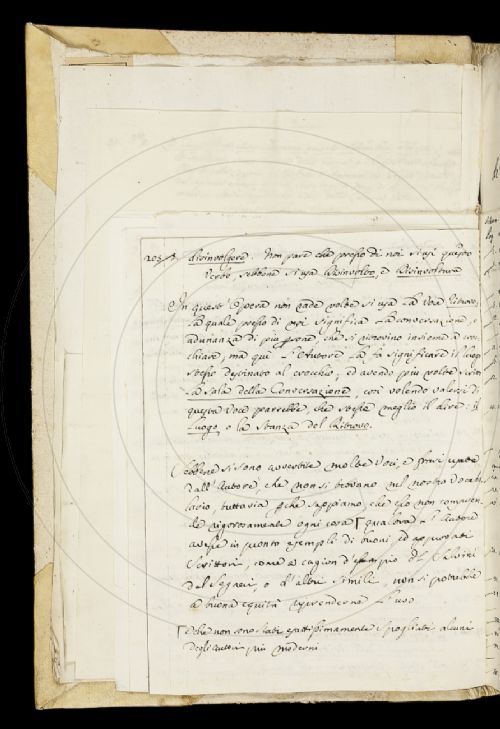 disinvolgere. Non pare che presso di noi si usi questo
verbo, sebbene si usa Disinvolto, e Disinvoltura
In quest'Opera non rade volte si usa la voce Ritrovo,
la quale presso di noi significa la conversazione, e
adunanza di più che si ritrovino insieme a
chiare, ma qui l'Autore la fa significare il luogo
stesso destinato al crocchio; ed avendo più volte
la sala della Conversazione, così volendo valersi di
questa voce parrebbe, che stesse meglio il dire: il
Luogo, o la Stanza del Ritrovo.
Sebbene si sono avvertite molte voci, e frasi usate
dall'Autore, che non si trovano nel nostro Vocabo
lario, tuttavia, sappiamo, che esso non compren
de rigorosamente ogni cosa qualora l'Autore
avesse in pronto esempli di buoni, ed approvati
Scrittori, come a cagion d'esempio del Salvini
del Segneri, o d'altri simili, non si potrebbe
a buona equità riprenderne l'uso
e che non sono stati esattissimamente spogliati alcuni
degli autori più moderni